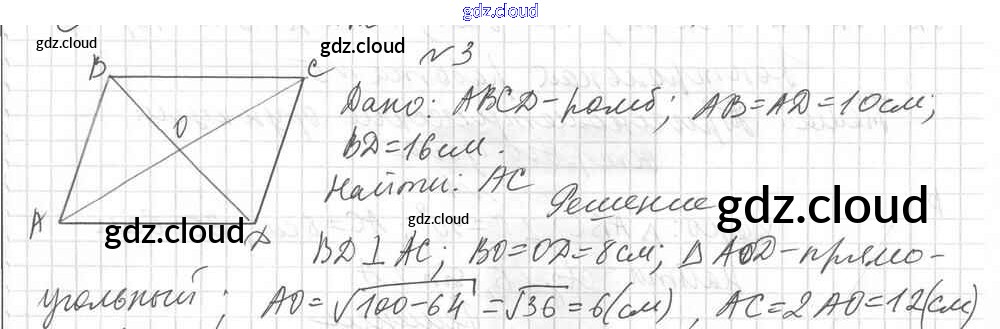 gdz.cloud
gdz.cloud
gdz.cloud
№3
B
C
Дано: ABCD-ромб; AB=AD=10см;
O
BD=16см.
Найти: AC
A
D
Решение
gdz.cloud
gdz.cloud
gdz.cloud
BD⊥AC; BO=OD=8см; ΔAOD-прямо-
угольный; AO=√100-64=√36=6(см), AC=2AO=12(см)